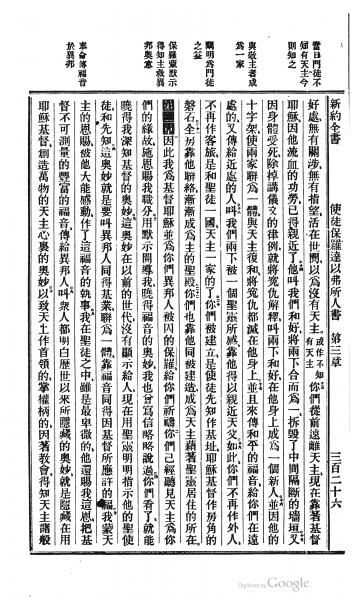 新約全書　使徒保羅達以弗所人書　第三章　三百二十六
當日門徒不
知有天主今
則知之
與敬主者成
為一家
闡明為門徒
之益
保羅蒙默示
得知主救異
邦奧意
奉命傳福音
於異邦
好處無有關涉無有指望活在世間以為沒有天主或作不知有天主你們從前遠離天主現在靠著基督
耶穌因他流血的功勞已得親近了他叫我們和好將兩下合而為一拆毀了中間隔斷的墻垣又
因身體受死除掉講儀文的律例就將寃仇解釋叫兩下和好在他身上成為一個新人並因他的
十字架使兩家聯為一體與天主復和將寃仇都滅在他身上並且來傳和平的福音給你們在遠
處的又傳給近處的人叫我們兩下被一個聖靈所感靠他得以親近天父如此你們不再作外人
不再作客旅是和聖徒一國天主一家的了你們被建立是使徒先知作基址耶穌基督作房角的
磐石全房靠他聯絡漸漸成為主的聖殿你們也靠他同被建造成為天主藉著聖靈居住的所在
第三章因此我為基督耶穌並為你們異邦人被囚的保羅給你們祈禱你們已經聽見天主為你
們的緣故施恩賜我職分用默示開導我曉得福音的奧妙我也曾寫信略略說過你們看了就能
曉得我深知基督的奧妙這奧妙在以前的世代沒有顯示給人現在用聖靈明明指示他的聖使
徒和先知這奧妙就是要叫異邦人同得基業聯為一體靠福音同得因基督所應許的福我蒙天
主的恩賜被他大能感動作了這福音的執事我在聖徒之中雖是最卑微的他還賜我這恩把基
督不可測量的豐富的福音傳給異邦人叫眾人都明白歷世以來所隱藏的奧妙就是隱藏在用
耶穌基督創造萬物的天主心裏的奧妙以致天上作首領的掌權柄的因著教會得知天主諸般
Digitized by Google